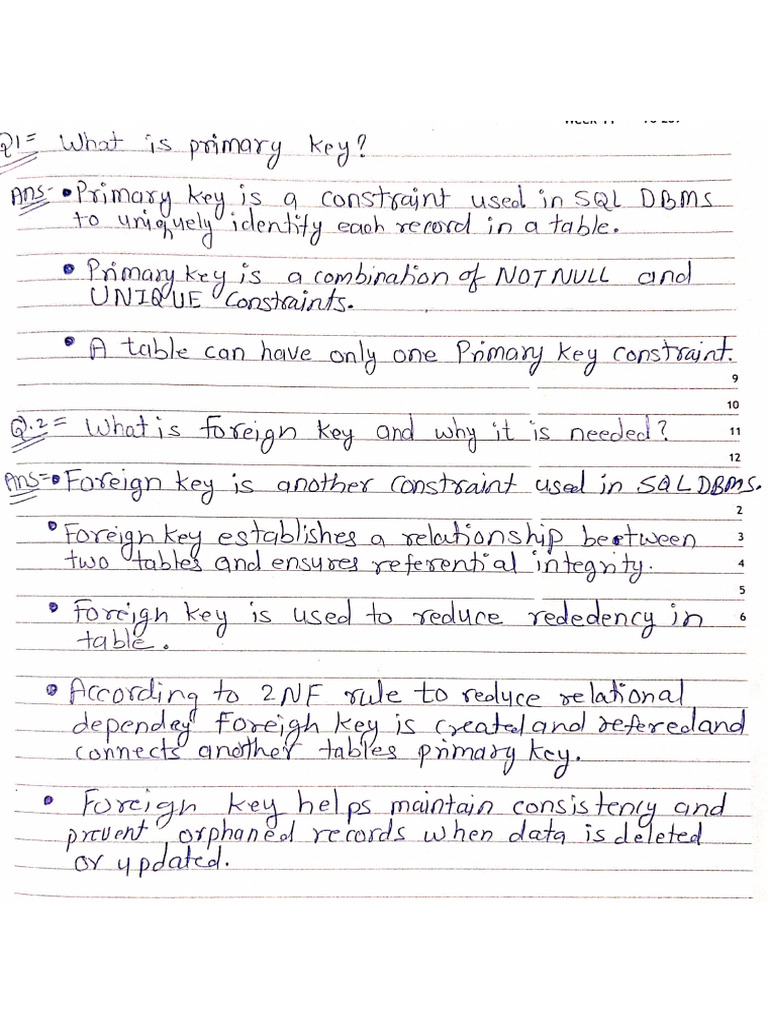 Q1= What is primary key?
Ans- • Primary key is a constraint used in SQL DBMS
to uniquely identify each record in a table.
• Primary key is a combination of NOT NULL and
UNIQUE constraints.
• A table can have only one Primary key constraint.
9
10
Q.2= What is foreign key and why it is needed?
11
12
Ans- • Foreign key is another constraint used in SQL DBMS.
2
• Foreign key establishes a relationship between
3
two tables and ensures referential integrity.
4
5
• Foreign key is used to reduce rededency in
6
table.
• According to 2NF rule to reduce relational
dependey foreigh key is created and refered and
connects another tables primary key.
• Foreign key helps maintain consistency and
prevent orphaned records when data is deleted
or updated.